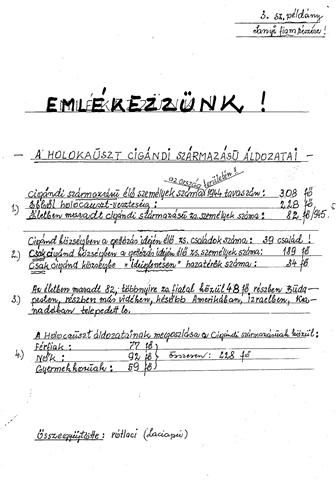 3. sz. példány
Lanyi fiam részére!
EMLÉKEZZÜNK!
- A HOLOKAÜSZT CIGÁNDI SZÁRMAZÁSÚ ÁLDOZATAI -
az ország területén!
1) Cigándi származású élő személyek száma 1944 tavaszán: 308 fő
Ebből holocauszt-veszteség: 228 fő
Életben maradt cigándi származású zs. személyek száma: 82 fő/945.
2) Cigánd községben a gettózás idején élő zs. családok száma: 39 család!
Csak cigánd községben a gettózás idején élő zs. személyek száma: 189 fő
Csak cigánd községbe "ideiglenesen" hazatérők száma: 34 fő
3) Az életben maradt 82, többnyire fiatal közül 48 fő, részben Buda-
pesten, részben más vidéken, később Amerikában, Izraelben, Ka-
nadában telepedett le.
4.) A Holokaüszt áldozatainak megoszlása a Cigándi származásúak közül:
Férfiak: 77 fő
Nők: 92 fő Összesen: 228 fő
Gyermekkorúak: 59 fő
Összegyűjtötte: rótlaci (Laciapu)